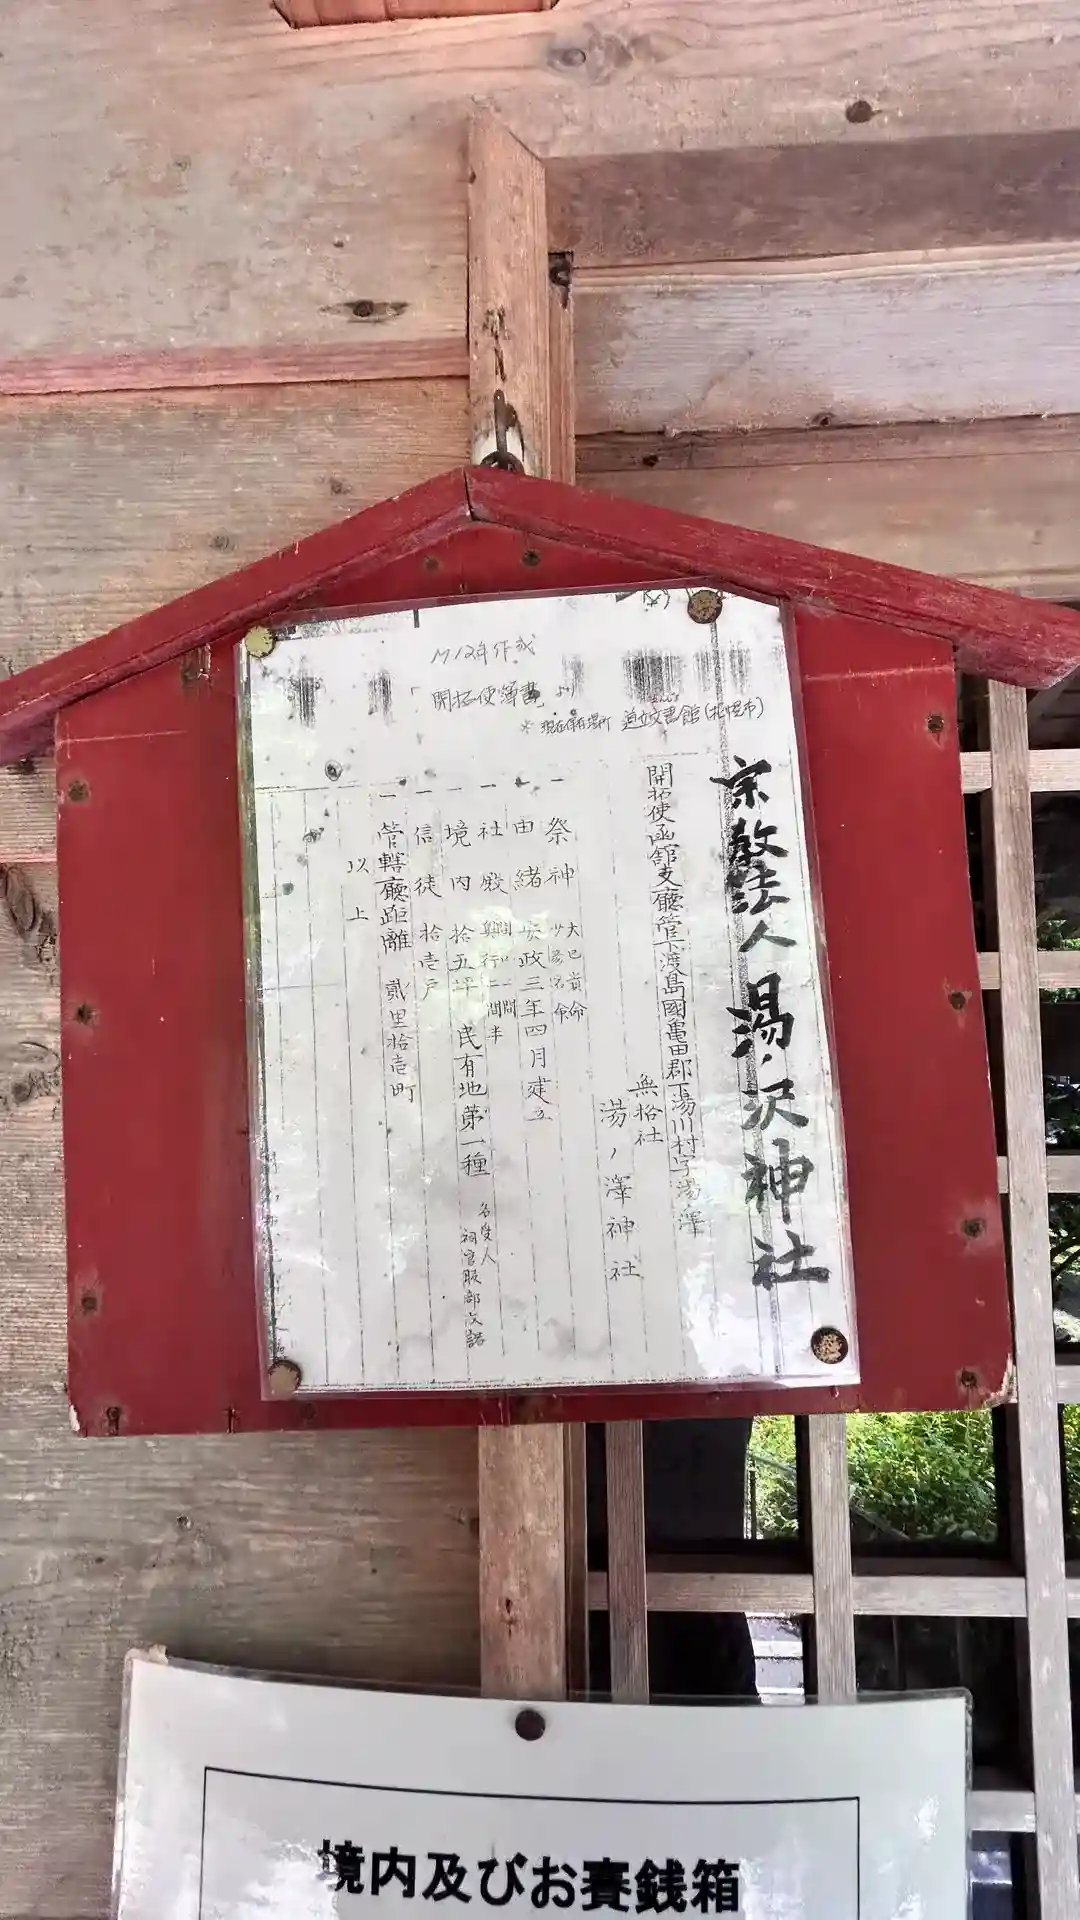 M12年作成
「開拓使簿書」より
※現在保存場所 道立文書館(札幌市)
宗教法人 湯ノ沢神社
開拓使函館支廳管下渡島國亀田郡下湯川村字湯ノ澤
無格社
湯ノ澤神社
一 祭神 大已貴命
少名命
一 由緒 安政三年四月建立
一 社殿 間口二間
奥行二間半
境内 拾五坪 民有地第一種 名受人
祠官服部
一 信徒 拾壱戸
一 管轄廳距離 貮里拾壱町
以上
境内及びお賽銭箱